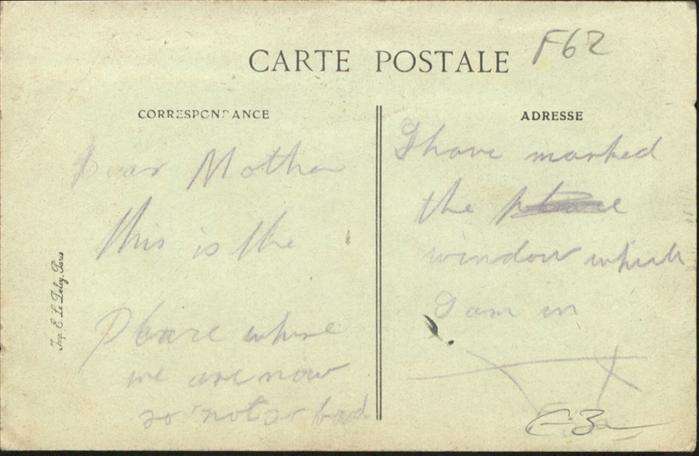 CARTE POSTALE
F62
CORRESPONDANCE
Dear Mother
this is the
Plare where
we are now
so not so bad
ADRESSE
I have marked
the place
window which
I am in
Imp. E. Le Deley, Paris